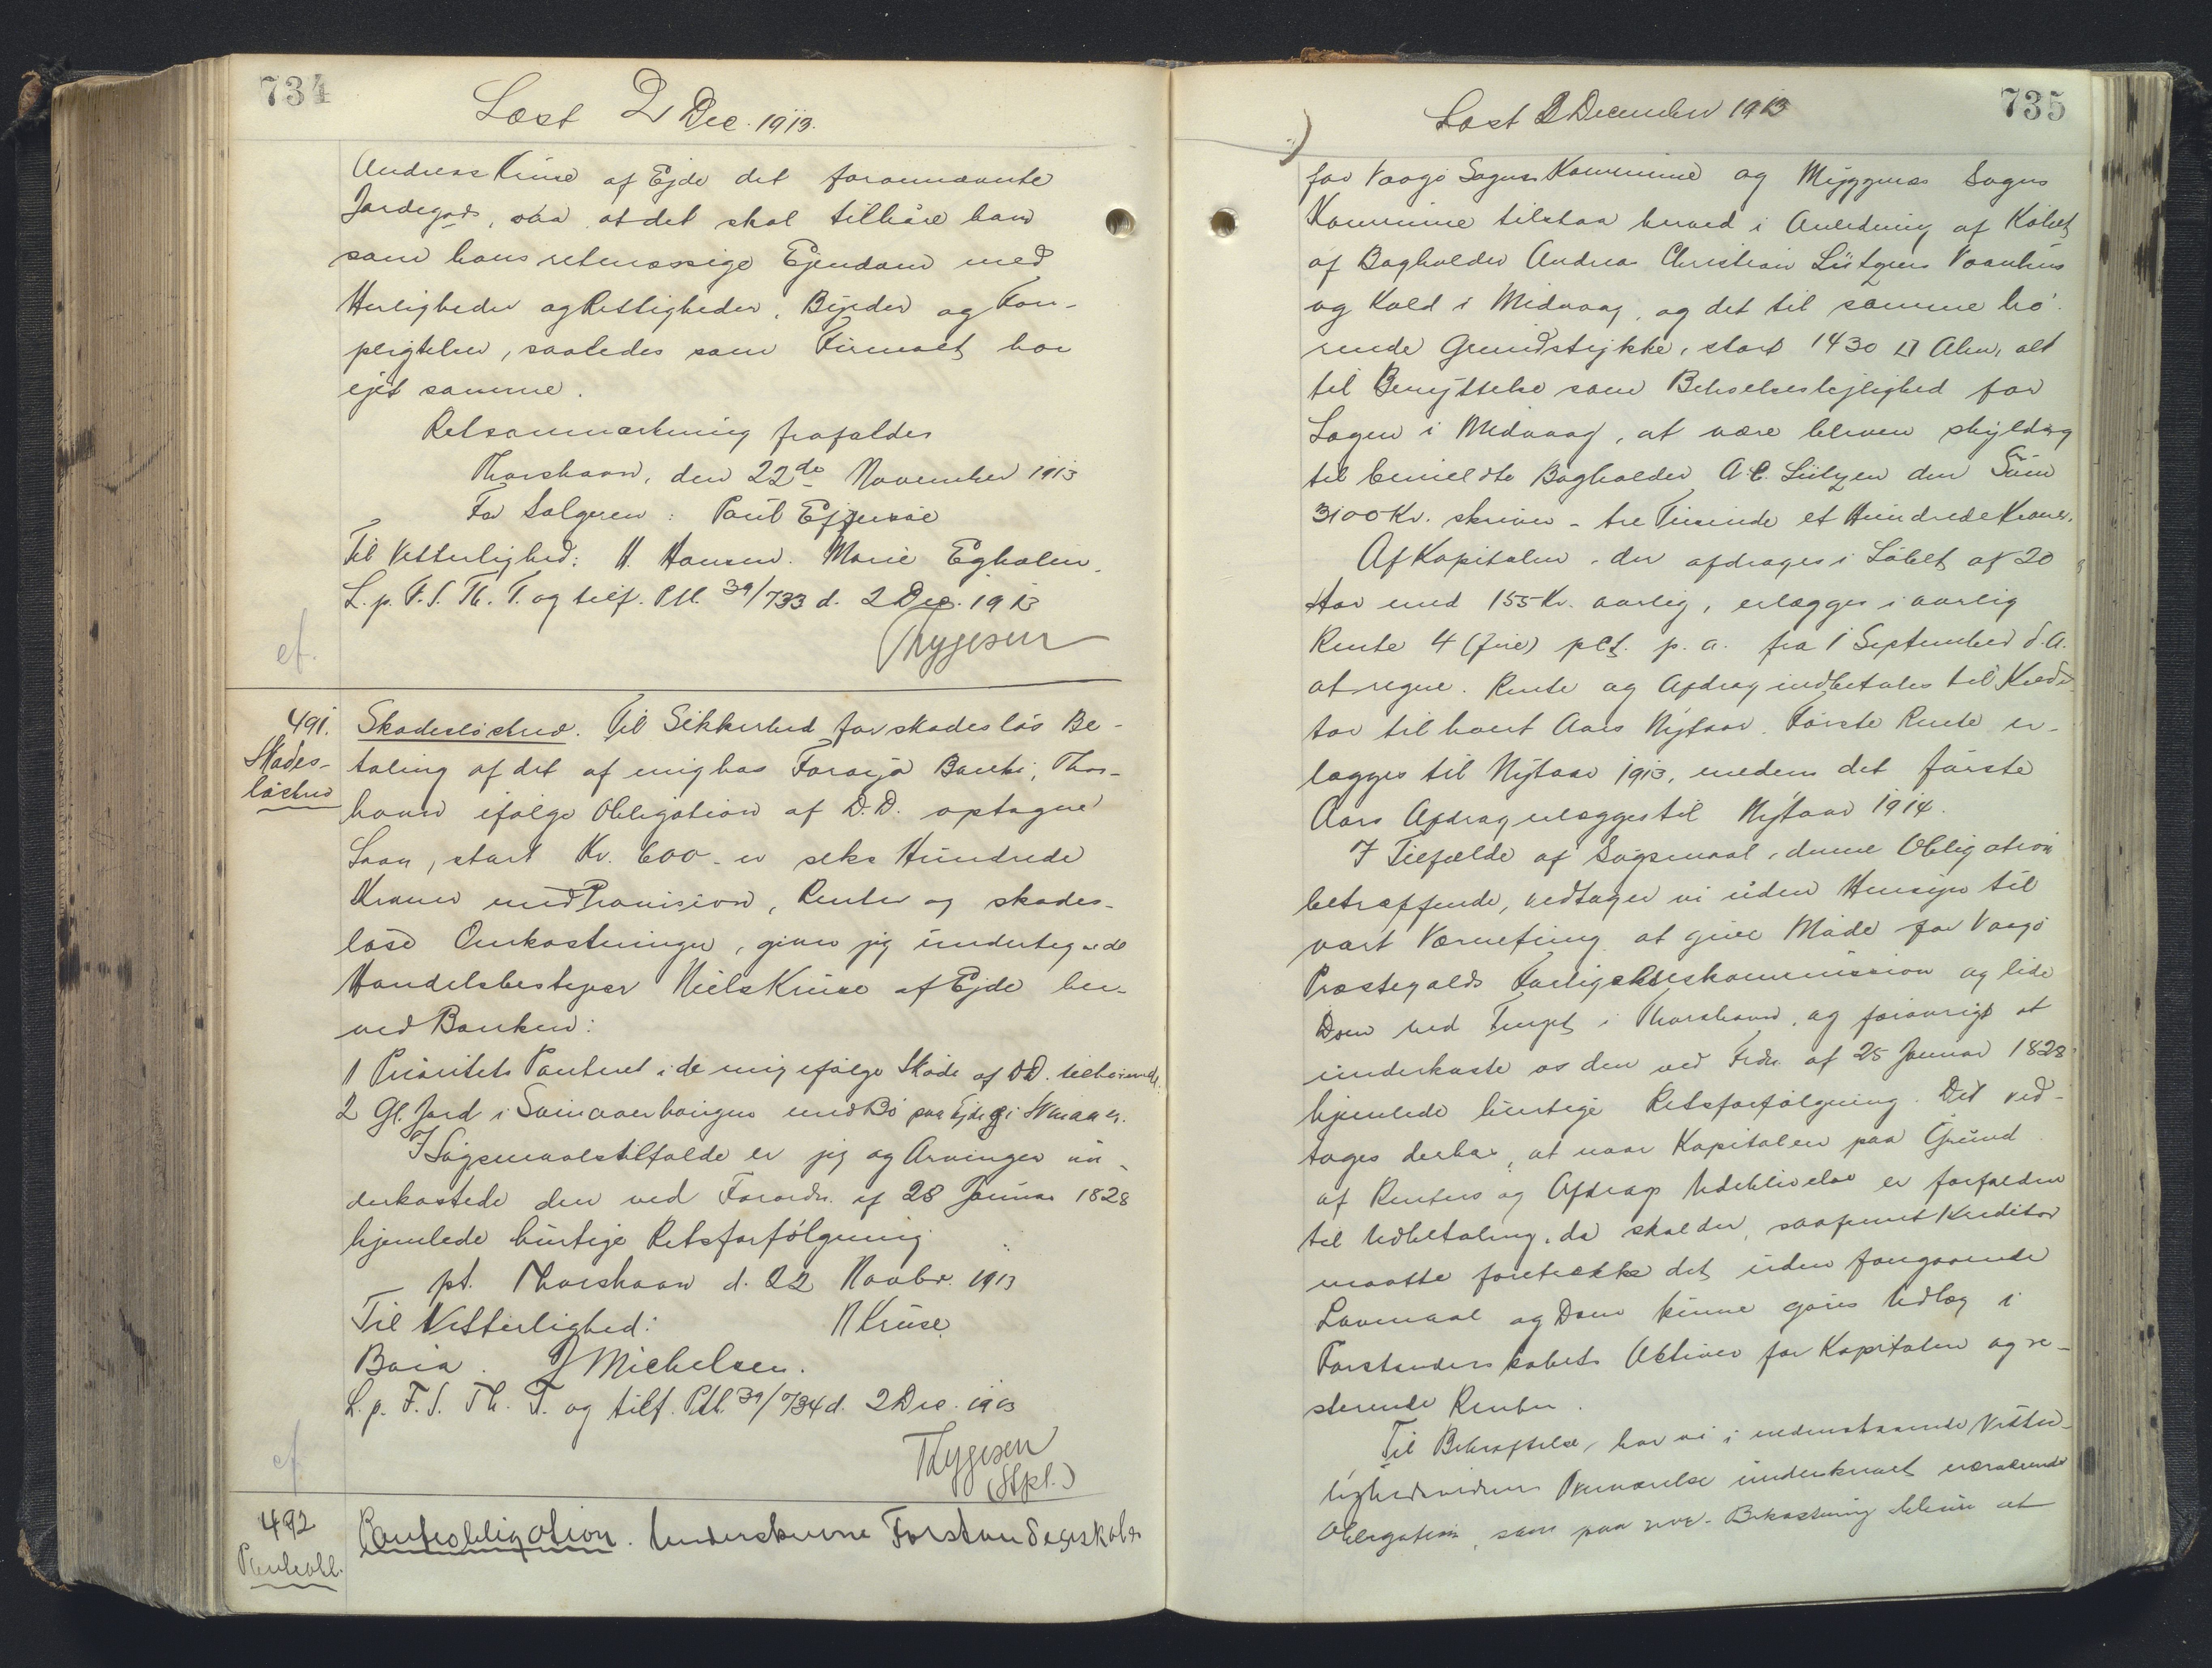 734
Læst 2 Dec. 1913.
Andreas Kruse af Ejde det forannævnte
Jordegods, saa at det skal tilhøre ham
som hans retmæssige Ejendom med
Herligheder og Rettigheder, Byrder og For-
pligtelser, saaledes som Firmaet har
ejet samme.
Retsanmærkning frafaldes
Thorshavn, den 22de November 1913
For Sælgeren: Poul Effersøe
Til Vitterlighed: H. Hansen. Marie Egholm.
L. p. F. S. Th. T. og tilf. Ptl. 39/733 d. 2 Dec. 1913
Thygesen
cf.
491.
Skades-
løsbrev
Skadesløsbrev. Til Sikkerhed for skadesløs Be-
taling af det af mig hos Færøya Banki, Thors-
havn ifølge Obligation af D.D. optagne
Laan, stort Kr. 600 - er seks Hundrede
Kroner med Provision, Renter og skades-
løse Omkostninger, giver jeg undertegnede
Handelsbestyrer Niels Kruse af Ejde her-
ved Banken:
1 Prioritets Panteret i de mig ifølge Skøde af DD. tilhørende
2 Gl. Jord i Svinaaer haugen med Bø paa Ejde og i Svinaaer.
I Søgsmaalstilfælde er jeg og Arvinger un-
derkastede den ved Forordn. af 28 Januar 1828
hjemlede hurtige Retsforfølgning
pt. Thorshavn d. 22 Novbr. 1913
Til Vitterlighed: N Kruse
Baia. J Michelsen.
L. p. F. S. Th. T. og tilf. Ptl. 39/734 d. 2 Dec. 1913
Thygesen
(Stpl.)
cf
492
Panteobl.
Panteobligation. Underskrevne Forstanderskaber
735
Læst 2 December 1913
for Vaagø Sogns Kommune og Myggenæs Sogns
Kommune tilstaa herved i Anledning af Købet
af Bogholder Andreas Christian Lützens Vaanhus
og Kold i Midvaag, og det til samme hø-
rende Grundstykke, stort 1430 □ Alen, alt
til Benyttelse som Beboelseslejlighed for
Lægen i Midvaag, at være bleven skyldig
til bemeldte Bogholder A. C. Lützen den Sum
3100 Kr. skriver - tre Tusinde et Hundrede Kroner.
Af Kapitalen, der afdrages i Løbet af 20
Aar med 155 Kr. aarlig, erlægges i aarlig
Rente 4 (fire) pCt. p. a. fra 1 September d. A.
at regne. Rente og Afdrag indbetales til Kredi-
tor til hvert Aars Nytaar. Første Rente er-
lægges til Nytaar 1913, medens det første
Aars Afdrag erlægges til Nytaar 1914.
I Tilfælde af Søgsmaal, denne Obligation
betræffende, vedtager vi uden Hensyn til
vort Værneting at give Møde for Vaagø
Præstegælds Forligelseskommission og lide
Dom ved Tinget i Thorshavn, og forøvrigt at
underkaste os den ved Frdn. af 25 Januar 1828
hjemlede hurtige Retsforfølgning. Det ved-
tages derhos, at naar Kapitalen paa Grund
af Renters og Afdrags Udeblivelse er forfalden
til Udbetaling, da skal der, saafremt Kreditor
maatte foretrække det uden foregaaende
Lovmaal og Dom kunne gøres Udlæg i
Forstanderskabets Aktiver for Kapitalen og re-
sterende Renter.
Til Bekræftelse, har vi i nedenstaaende Vitter-
lighedsvidners Overværelse underskrevet nærværende
Obligation, som paa vor Bekostning bliver at